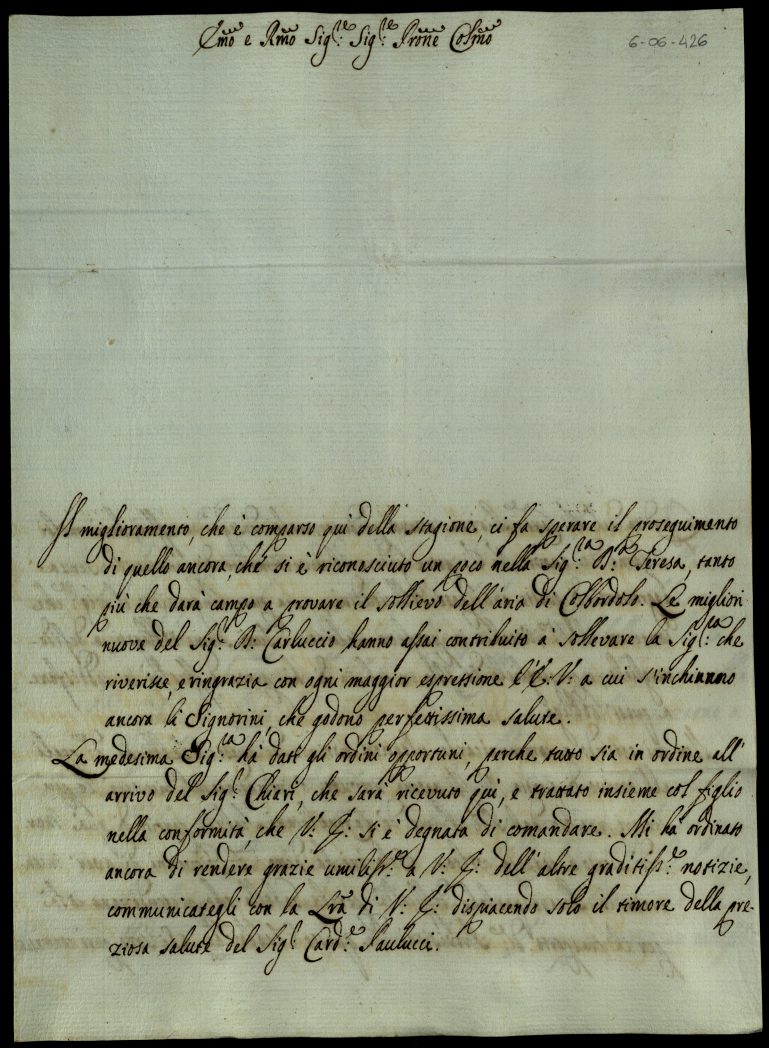 Emo e Rmo Sig.re Sig.re Prone Colmo
6-06-426
Il miglioramento, che è comparso quì della stagione, ci fa sperare il proseguimento
di quello ancora, che si è riconosciuto un poco nella Sig.ra D.a Teresa, tanto
più che darà campo a provare il sollievo dell'aria di Colbordolo. Le migliori
nuove del Sig.r D: Carluccio hanno assai contribuito à sollevare la Sig.ra che
riverisce, e ringrazia con ogni maggior espressione l'E: V: a cui s'inchinano
ancora li Signorini, che godono perfettissima salute.
La medesima Sig.ra hà dati gli ordini opportuni, perche tutto sia in ordine all'
arrivo del Sig.r Chieri, che sarà ricevuto quì, e trattato insieme col figlio
nella conformità, che V: E: si è degnata di comandare. Mi hà ordinato
ancora di rendere grazie umiliss.e a V: E: dell'altre graditiss.e notizie,
communicategli con la Lra di V: E: dispiacendo solo il timore della pre-
ziosa salute del Sig.r Card.e Paulucci.